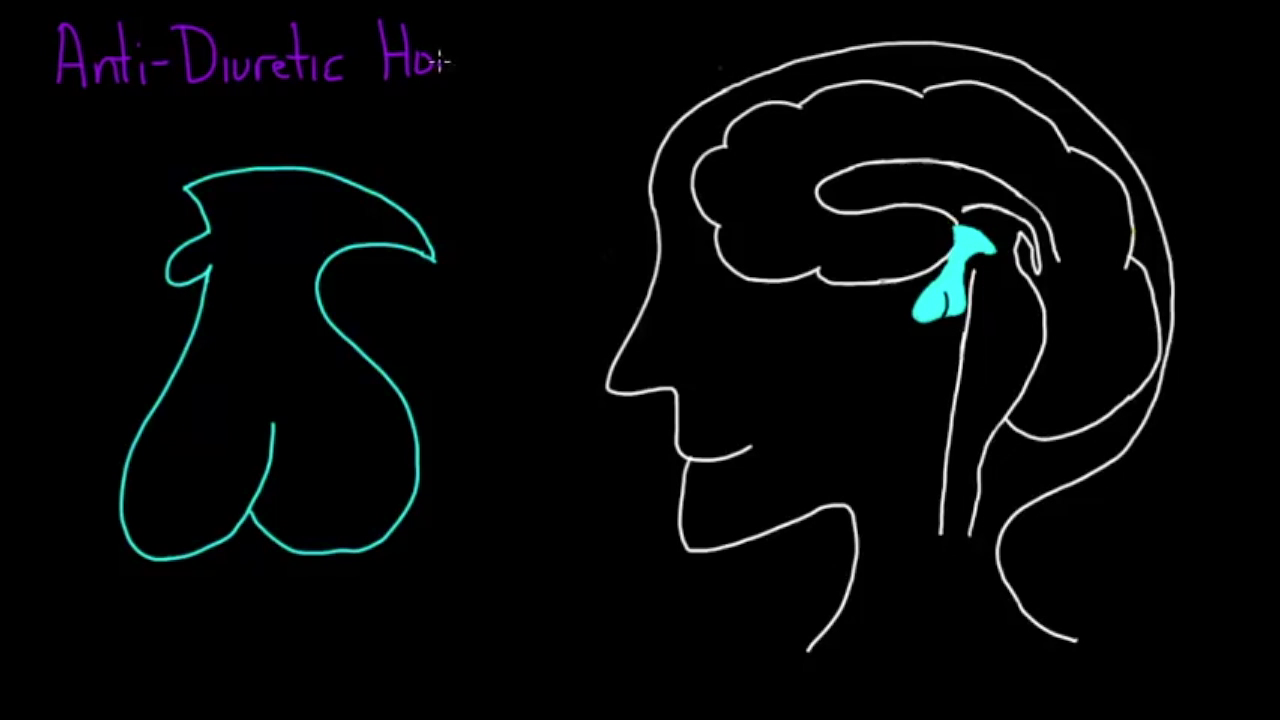 Anti-Diuretic Ho